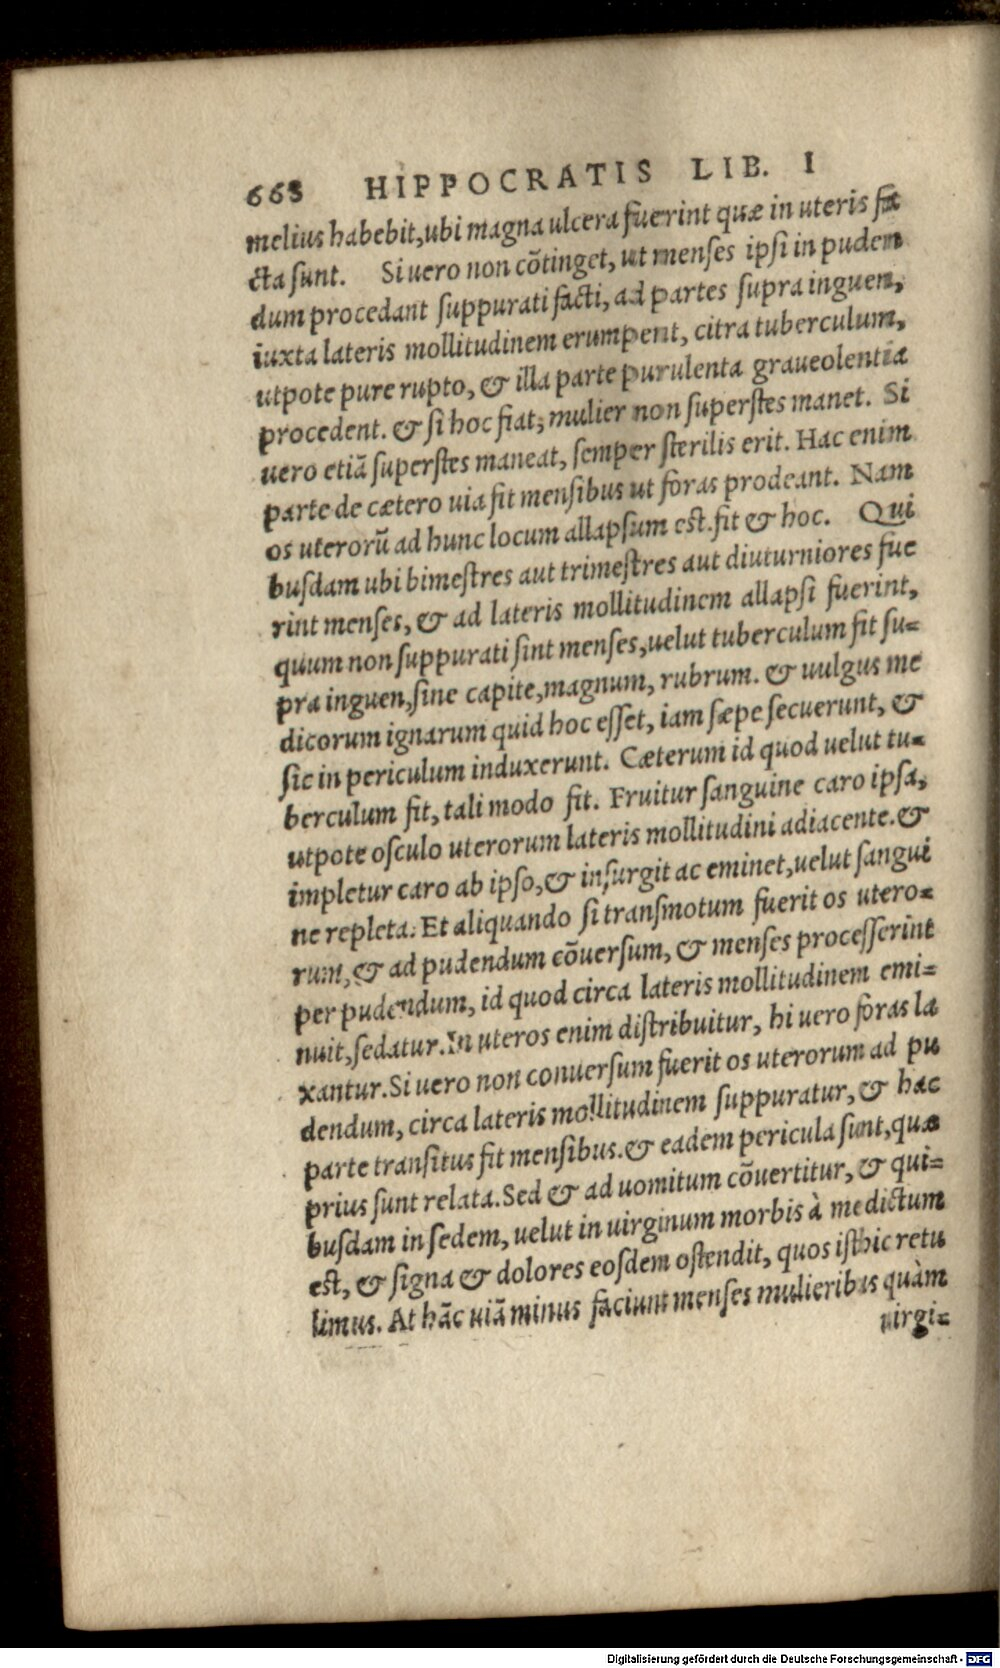 668 HIPPOCRATIS LIB. I
melius habebit, ubi magna ulcera fuerint quæ in uteris fa
cta sunt. Si uero non cõtinget, ut menses ipsi in puden
dum procedant suppurati facti, ad partes supra inguen,
iuxta lateris mollitudinem erumpent, citra tuberculum,
utpote pure rupto, & illa parte purulenta graueolentia
procedent. & si hoc fiat, mulier non superstes manet. Si
uero etiã superstes maneat, semper sterilis erit. Hac enim
parte de cætero uia fit mensibus ut foras prodeant. Nam
os uterorũ ad hunc locum allapsum est. fit & hoc. Qui
busdam ubi bimestres aut trimestres aut diuturniores fue
rint menses, & ad lateris mollitudinem allapsi fuerint,
quum non suppurati sint menses, uelut tuberculum fit su=
pra inguen, sine capite, magnum, rubrum. & uulgus me
dicorum ignarum quid hoc esset, iam sæpe secuerunt, &
sic in periculum induxerunt. Cæterum id quod uelut tu=
berculum fit, tali modo fit. Fruitur sanguine caro ipsa,
utpote osculo uterorum lateris mollitudini adiacente. &
impletur caro ab ipso, & insurgit ac eminet, uelut sangui
ne repleta. Et aliquando si transmotum fuerit os utero=
rum, & ad pudendum cõuersum, & menses processerint
per pudendum, id quod circa lateris mollitudinem emi=
nuit, sedatur. In uteros enim distribuitur, hi uero foras la
xantur. Si uero non conuersum fuerit os uterorum ad pu
dendum, circa lateris mollitudinem suppuratur, & hac
parte transitus fit mensibus. & eadem pericula sunt, quæ
prius sunt relata. Sed & ad uomitum cõuertitur, & qui=
busdam in sedem, uelut in uirginum morbis à me dictum
est, & signa & dolores eosdem ostendit, quos isthic retu
limus. At hãc uiã minus faciunt menses mulieribus quàm
uirgi=
Digitalisierung gefördert durch die Deutsche Forschungsgemeinschaft - DFG